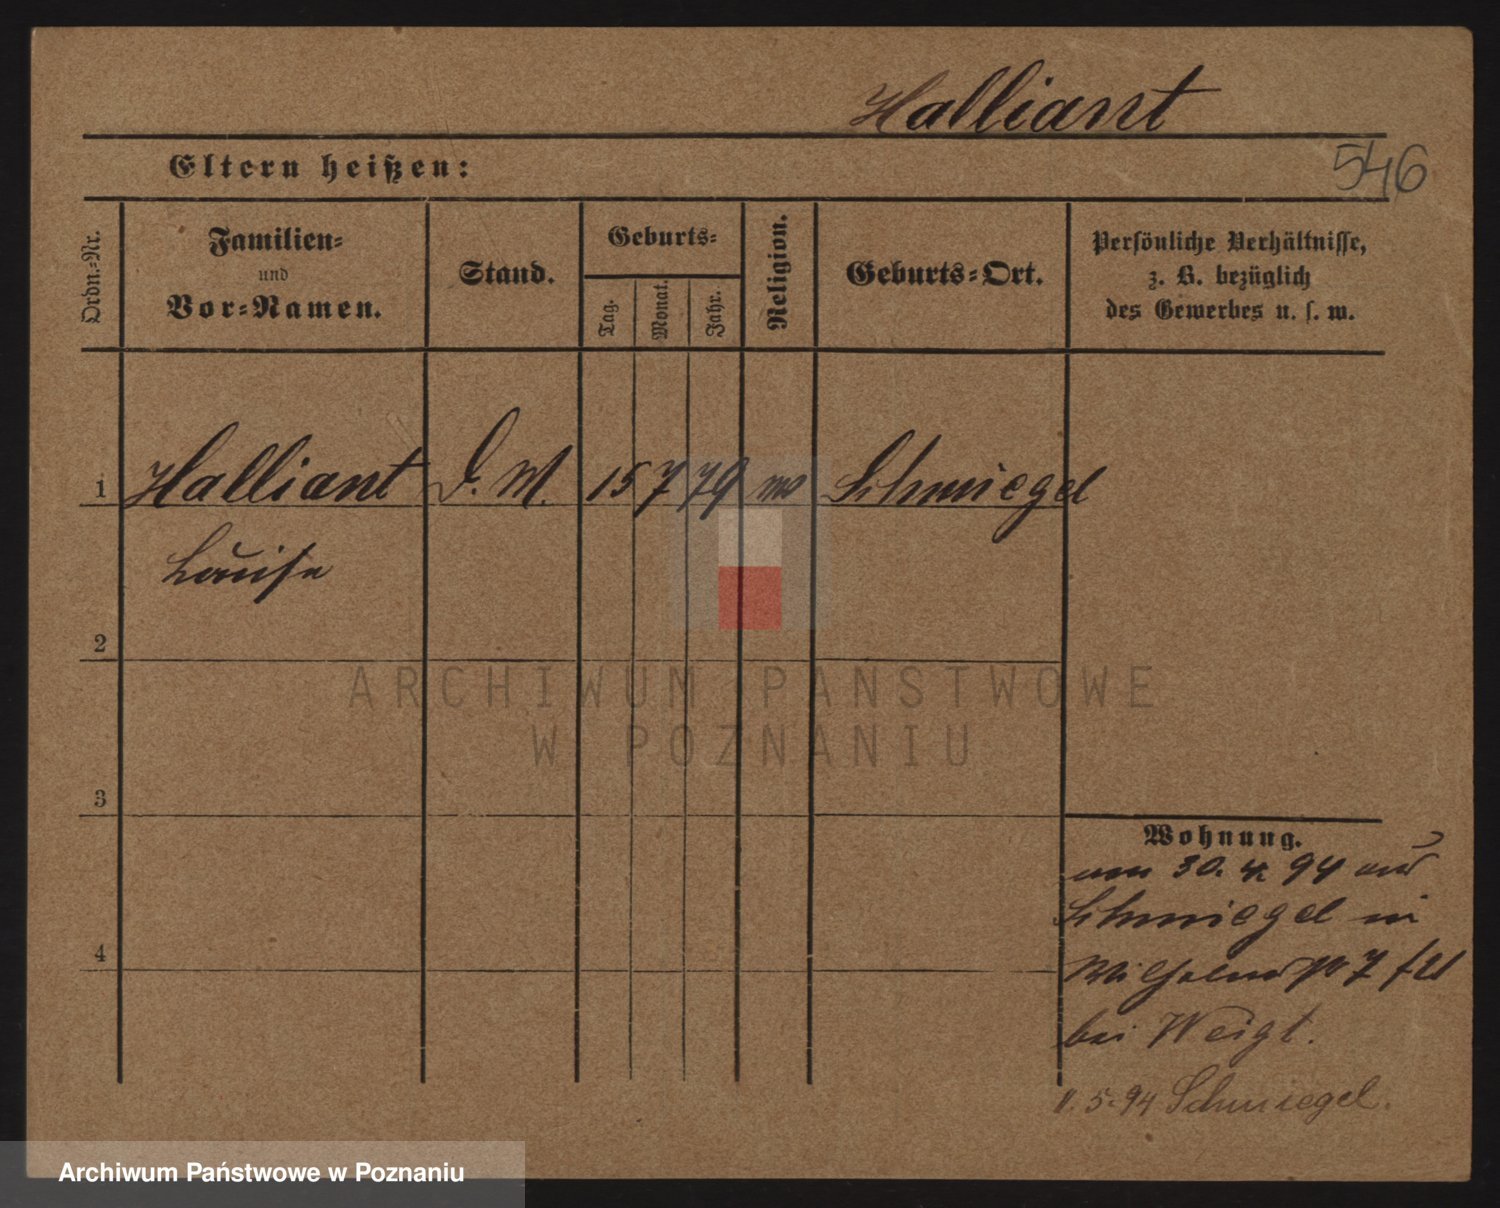 Halliant
Eltern heißen:
546
Ordn.-Nr.
Familien-
und
Vor-Namen.
Stand.
Geburts-
Tag.
Monat.
Jahr.
Religion.
Geburts-Ort.
Persönliche Verhältnisse,
z. B. bezüglich
des Gewerbes u. s. w.
1 Halliant D. M. 15 7 79 Schmiegel
Louise
2
3
4
Wohnung.
30. 4. 94 aus
Schmiegel in
7
bei Weigt.
11. 5. 94 Schmiegel.
ARCHIWUM PAŃSTWOWE
W POZNANIU
Archiwum Państwowe w Poznaniu